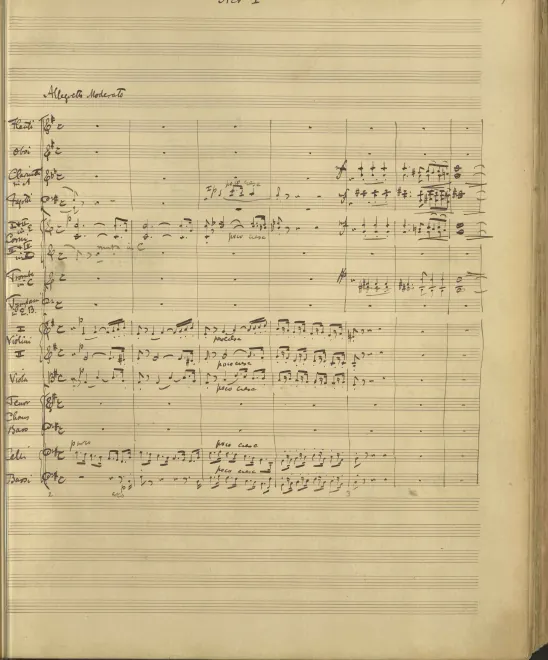 Act I
Allegretto Moderato
Flauti
Oboi
Clarinetti
in A
poco cresc
Fagotti
I II
in E
Corni
poco cresc
in D
muta in C
Trombe
in C
Timpani
I
Violini
poco cresc
II
poco cresc
Viola
poco cresc
Tenor
Chorus
Bass
Celli
poco cresc
Bassi
poco cresc